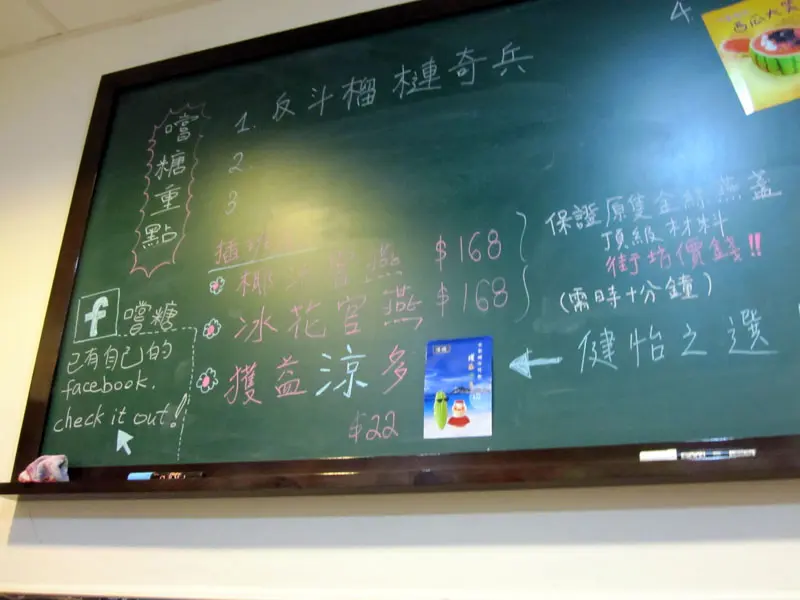 嚐糖重點
1. 反斗榴槤奇兵
2.
3
4.
西瓜大
椰汁官燕 $168
冰花官燕 $168
保證原隻金絲燕盞
頂級材料
街坊價錢!!
(需時十分鐘)
獲益涼多
$22
健怡之選
f 嚐糖
已有自己的
facebook.
check it out!